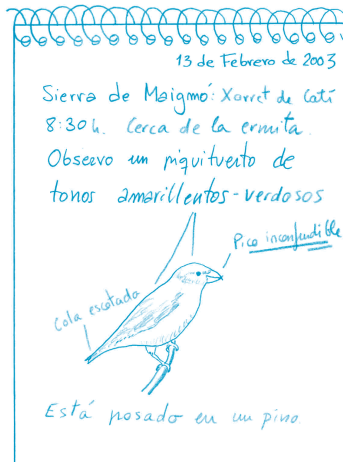 13 de Febrero de 2003
Sierra de Maigmó: Xorret de Catí
8:30h. Cerca de la ermita.
Observo un piquituerto de
tonos amarillentos-verdosos
Pico inconfundible
Cola escotada
Está posado en un pino